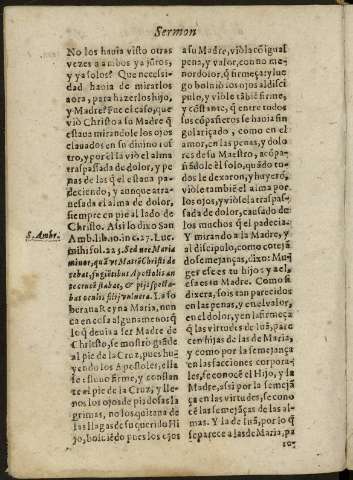 Sermon
No los hauia visto otras
vezes a ambos ya jũtos,
y ya solos? Que necessi-
dad hauia de mirarlos
aora, para hizerlos hijo,
y Madre? Fue el caso, que
vió Christo a su Madre q̃
estaua mirandole los ojos
clauados en su diuino ros
tro, y por ella vió el alma
traspassada de dolor, y pe
nas de las q̃ el estaua pa-
deciendo, y aunque atra-
uesada el alma de dolor,
siempre en pie al lado de
Christo. Assi lo dixo San
S. Ambr.
Amb. lib. 10. in c. 27. Luc.
mihi fol. 225. Sed nec Maria
minor, quã vt Matrẽ Christi de
cebat, fugiẽtibus Apostolis an
te crucẽ stabat, & pijs specta-
bat oculis filij vulnera. La so
berana Reyna Maria, nun
ca en cosa alguna menor q̃
lo q̃ deuia a ser Madre de
Christo, se mostro grãde
al pie de la Cruz, pues huy
yendo los Apostoles, ella
se estuuo firme, y constan
te al pie de la Cruz, y lle-
nos los ojos de piadosas la
grimas, no los quitaua de
las llagas de su querido Hi
jo, boluiẽdo pues los ojos
a su Madre, vióla cõ igual
pena, y valor, con no me-
nor dolor, q̃ firmeça; y lue
go boluió los ojos al disci
pulo, y vióle tãbiẽ firme,
y cõstante, q̃ entre todos
sus cõpañeros se hauia sin
gulariçado, como en el
amor, en las penas, y dolo
res de su Maestro, acõpa-
ñãdole èl solo, quãdo to-
dos le dexaron, y huyerõ,
vióle tambiẽ el alma por
los ojos, y vióla traspas-
sada de dolor, causado de
los muchos q̃ el padecia.
Y mirando a la Madre, y
al discipulo, como cotejã
do semejanças, dixo: Mu-
ger esse es tu hijo: y a el,
essa es su Madre. Como si
dixera, sois tan parecidos
en las penas, y en el valor,
en el dolor, y en la firmeça
q̃ las virtudes de Iuã, pare
cen hijas de las de Maria,
y como por la semejança
en las facciones corpora-
les, se conocẽ el Hijo, y la
Madre, assi por la semejã
ça en las virtudes, se cono
cẽ las semejãças de las al-
mas. Y la de Iuã, por lo q̃
se parece a las de Maria, pa